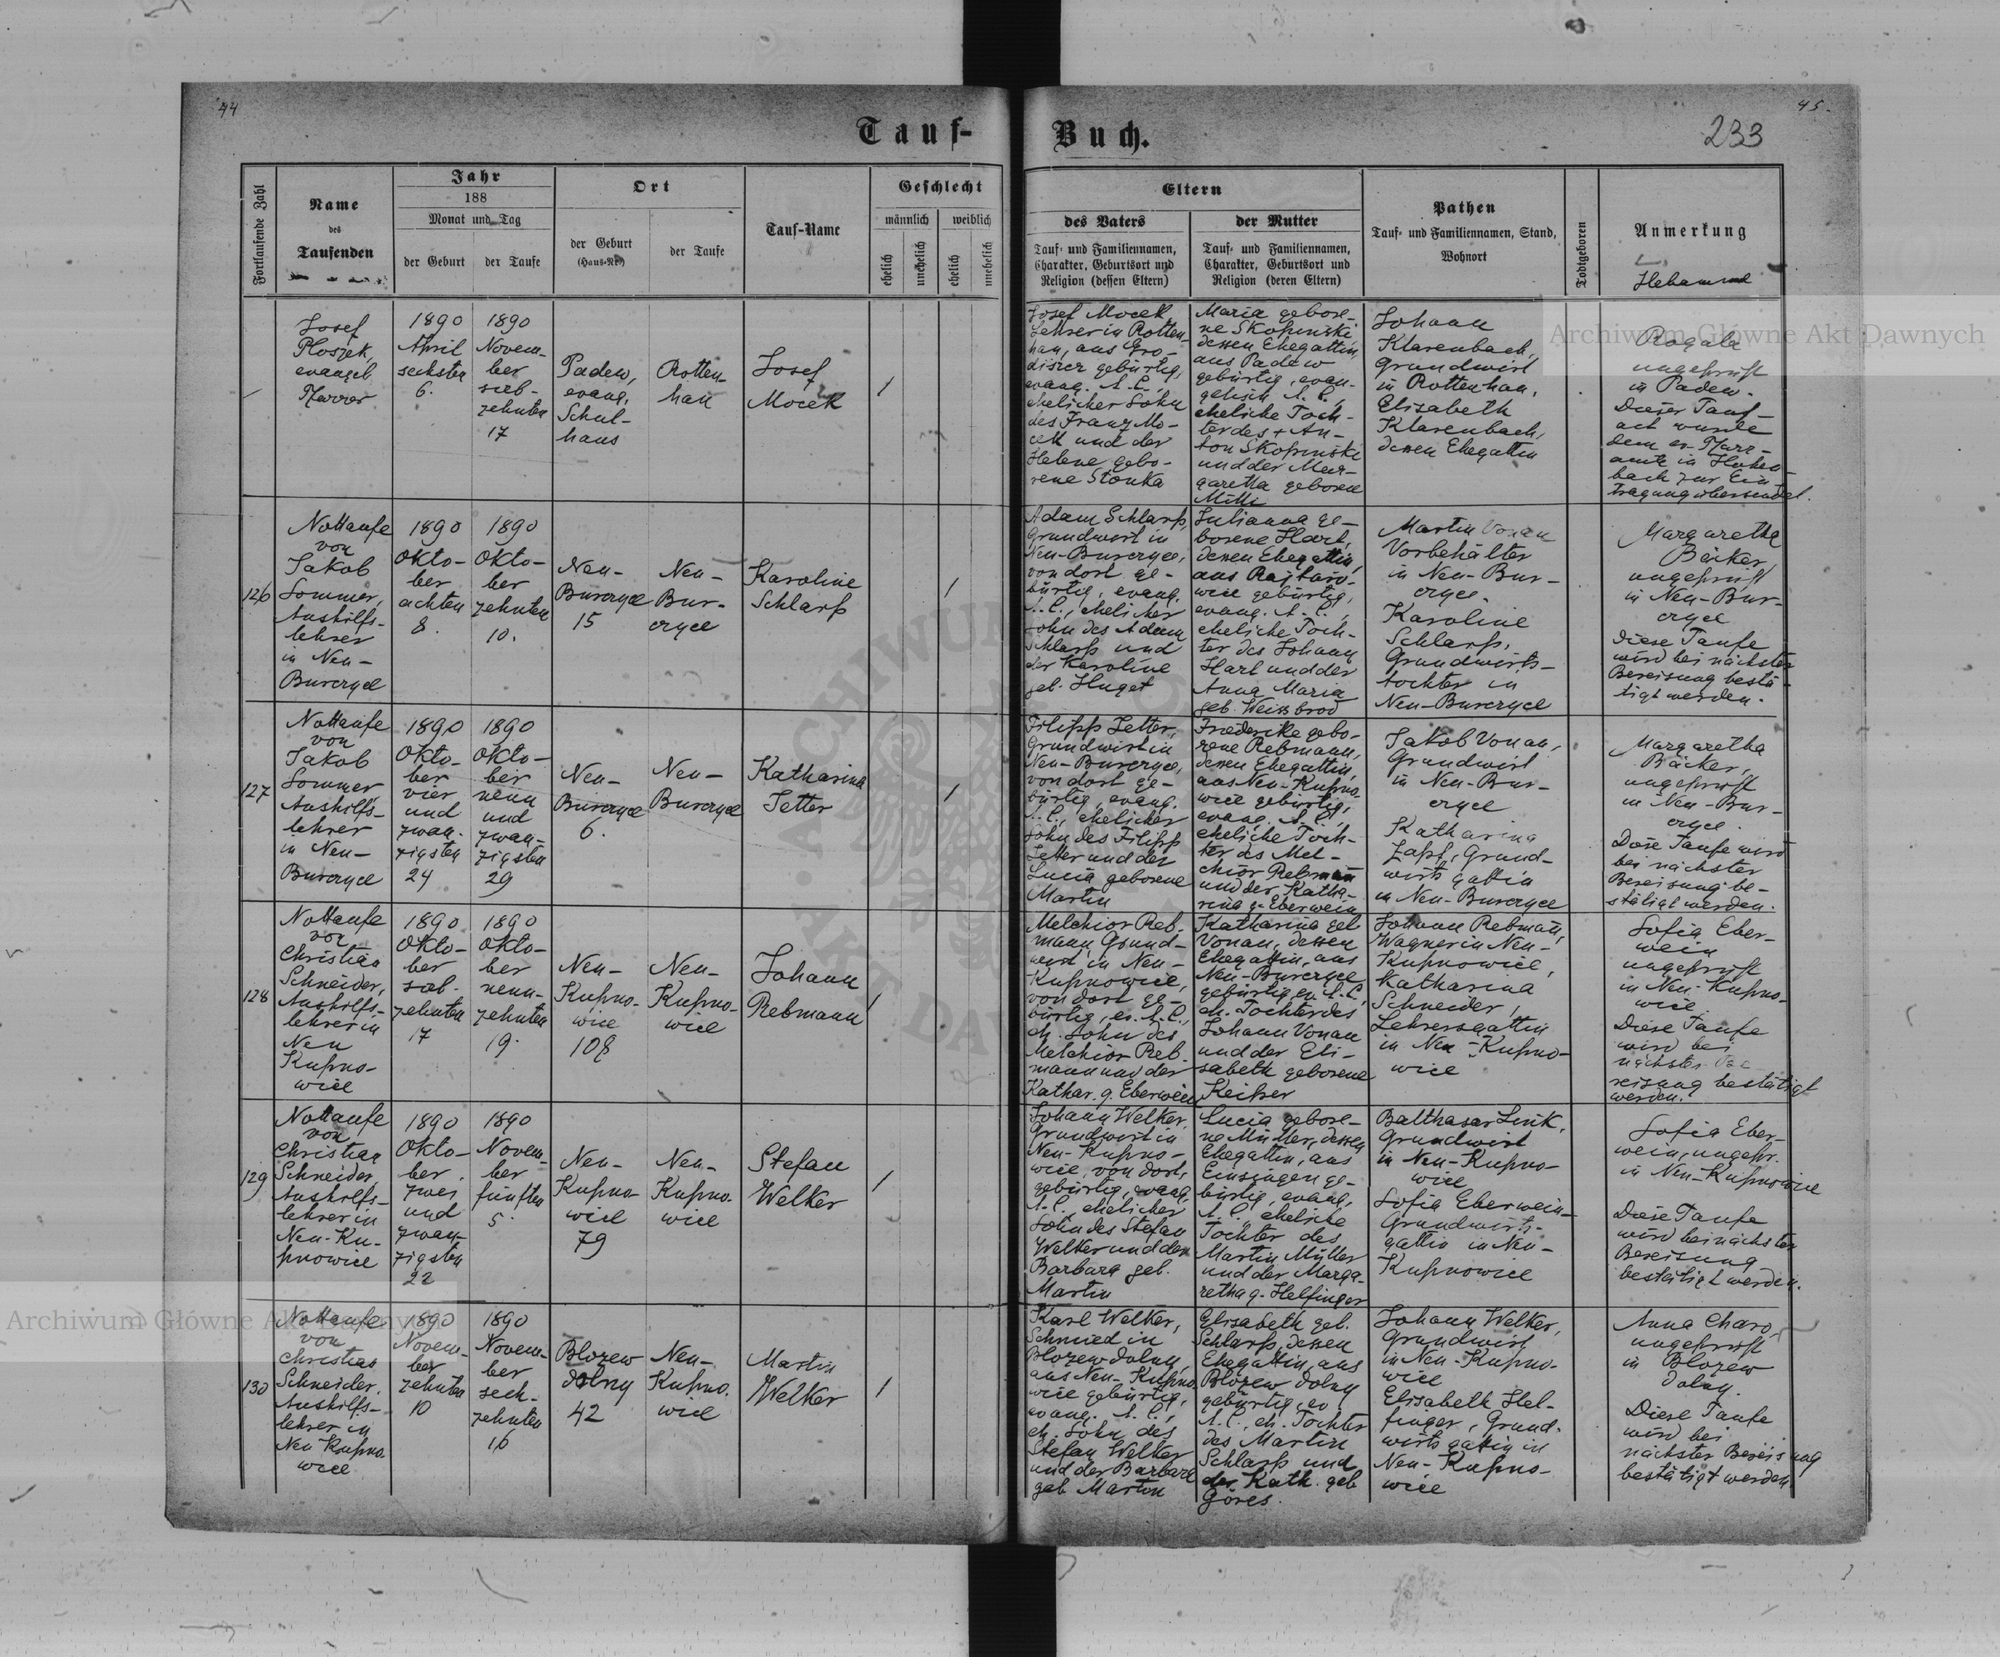 44
45.
233
Tauf-
Buch.
Fortlaufende Zahl
Name
des
Taufenden
Jahr
188
Monat und Tag
der Geburt
der Taufe
Ort
der Geburt
(Haus-Nr.)
der Taufe
Tauf-Name
Geschlecht
männlich
weiblich
ehelich
unehelich
ehelich
unehelich
Eltern
des Vaters
Tauf- und Familiennamen,
Charakter, Geburtsort und
Religion (dessen Eltern)
der Mutter
Tauf- und Familiennamen,
Charakter, Geburtsort und
Religion (deren Eltern)
Pathen
Tauf- und Familiennamen, Stand,
Wohnort
Todtgeboren
Anmerkung
Josef
Ploszek,
evangel.
Pfarrer
1890
April
sechsten
6.
1890
Novem-
ber
sieb-
zehnten
17
Padew,
evang.
Schul-
haus
Rotten-
han
Josef
Mocek
Josef Mocek
Lehrer in Rotten-
han, aus Gro-
gebürtig,
evang. A. C.,
ehelicher Sohn
des Franz Mo-
cek und der
Helene gebo-
rene Stonka
Maria gebore-
ne Skopinski,
dessen Ehegattin,
aus Padew
gebürtig, evan-
gelisch A. C.,
eheliche Toch-
ter des + An-
ton Skopinski
und der Mar-
garetha geborene
Johann
Klarenbach,
Grundwirt
in Rottenhan,
Elisabeth
Klarenbach,
dessen Ehegattin
Rogala
ungeprüft
in Padew.
Dieser Tauf-
act wurde
dem ev. Pfarr-
amte in Hohen-
bach zur Ein-
tragung übersendet.
126
Nottaufe
von
Jakob
Sommer,
Aushilfs-
lehrer
in Neu-
Burczyce
1890
Okto-
ber
achten
8.
1890
Okto-
ber
zehnten
10.
Neu-
Burczyce
15
Neu-
Bur-
czyce
Karoline
Schlarp
Adam Schlarp,
Grundwirt in
Neu-Burczyce,
von dort ge-
bürtig, evang.
A. C., ehelicher
Sohn des Adam
Schlarp und
der Karoline
geb. Huget
Julianna ge-
borene Hart,
dessen Ehegattin,
aus Rajtaro-
wice gebürtig,
evang. A. C.,
eheliche Toch-
ter des Johann
Hart und der
Anna Maria
geb. Weissbrod
Martin Vonau
Vorbehälter
in Neu-Bur-
czyce.
Karoline
Schlarp,
Grundwirts-
tochter in
Neu-Burczyce
Margaretha
Bäcker,
ungeprüft
in Neu-Bur-
czyce
Diese Taufe
wird bei nächster
Bereisung bestä-
tigt werden.
127
Nottaufe
von
Jakob
Sommer,
Aushilfs-
lehrer
in Neu-
Burczyce
1890
Okto-
ber
vier
und
zwan-
zigsten
24
1890
Okto-
ber
neun
und
zwan-
zigsten
29
Neu-
Burczyce
6.
Neu-
Burczyce
Katharina
Jetter
Filipp Jetter,
Grundwirt in
Neu-Burczyce,
von dort ge-
bürtig, evang.
A. C., ehelicher
Sohn des Filipp
Jetter und der
Lucia geborene
Martin
Friederike gebo-
rene Rebmann,
dessen Ehegattin,
aus Neu-Kupno-
wice gebürtig,
evang. A. C.,
eheliche Toch-
ter des Mel-
chior Rebmann
und der Katha-
rina g. Eberwein
Jakob Vonau,
Grundwirt
in Neu-Bur-
czyce
Katharina
Zapf, Grund-
wirtsgattin
in Neu-Burczyce
Margaretha
Bäcker,
ungeprüft
in Neu-Bur-
czyce.
Diese Taufe wird
bei nächster
Bereisung be-
stätigt werden.
128
Nottaufe
von
Christian
Schneider,
Aushilfs-
lehrer in
Neu
Kupno-
wice
1890
Okto-
ber
sieb-
zehnten
17
1890
Okto-
ber
neun-
zehnten
19.
Neu-
Kupno-
wice
108
Neu-
Kupno-
wice
Johann
Rebmann
Melchior Reb-
mann, Grund-
wirt in Neu-
Kupnowice,
von dort ge-
bürtig, ev. A. C.,
eh. Sohn des
Melchior Reb-
mann und der
Kathar. g. Eberwein
Katharina geb
Vonau, dessen
Ehegattin, aus
Neu-Burczyce
gebürtig, ev. A. C.,
eh. Tochter des
Johann Vonau
und der Eli-
sabeth geborene
Keiper
Johann Rebmann,
Wagner in Neu-
Kupnowice,
Katharina
Schneider,
Lehrersgattin
in Neu-Kupno-
wice
Sofia Eber-
wein
ungeprüft
in Neu-Kupno-
wice.
Diese Taufe
wird bei
nächster Be-
reisung bestätigt
werden.
129
Nottaufe
von
Christian
Schneider,
Aushilfs-
lehrer in
Neu-Ku-
pnowice
1890
Okto-
ber
zwei
und
zwan-
zigsten
22
1890
Novem-
ber
fünften
5.
Neu-
Kupno-
wice
79
Neu-
Kupno-
wice
Stefan
Welker
Johann Welker,
Grundwirt in
Neu-Kupno-
wice, von dort,
gebürtig, evang.
A. C., ehelicher
Sohn des Stefan
Welker und der
Barbara geb.
Martin
Lucia gebore-
ne Müller, dessen
Ehegattin, aus
Einsingen ge-
bürtig, evang.
A. C., eheliche
Tochter des
Martin Müller
und der Marga-
retha g. Helfinger
Balthasar Link,
Grundwirt
in Neu-Kupno-
wice
Sofia Eberwein-
Grundwirts-
gattin in Neu-
Kupnowice
Sofia Eber-
wein, ungepr.
in Neu-Kupnowice
Diese Taufe
wird bei nächster
Bereisung
bestätigt werden.
130
Nottaufe
von
Christian
Schneider,
Aushilfs-
lehrer in
Neu Kupno-
wice
1890
Novem-
ber
zehnten
10
1890
Novem-
ber
sech-
zehnten
16
Blozew
dolny
42
Neu-
Kupno-
wice
Martin
Welker
Karl Welker,
Schmied in
Blozew dolny,
aus Neu-Kupno-
wice gebürtig,
evang. A. C.,
eh. Sohn des
Stefan Welker
und der Barbara
geb. Martin
Elisabeth geb.
Schlarp, dessen
Ehegattin, aus
Blozew dolny
gebürtig, ev.
A. C., eh. Tochter
des Martin
Schlarp und
der Kath. geb
Göres.
Johann Welker,
Grundwirt
in Neu-Kupno-
wice
Elisabeth Hel-
finger, Grund-
wirtsgattin in
Neu-Kupno-
wice
Anna Charo,
ungeprüft
in Blozew
dolny.
Diese Taufe
wird bei
nächster Bereisung
bestätigt werden
Archiwum Główne Akt Dawnych
Archiwum Główne Akt Dawnych